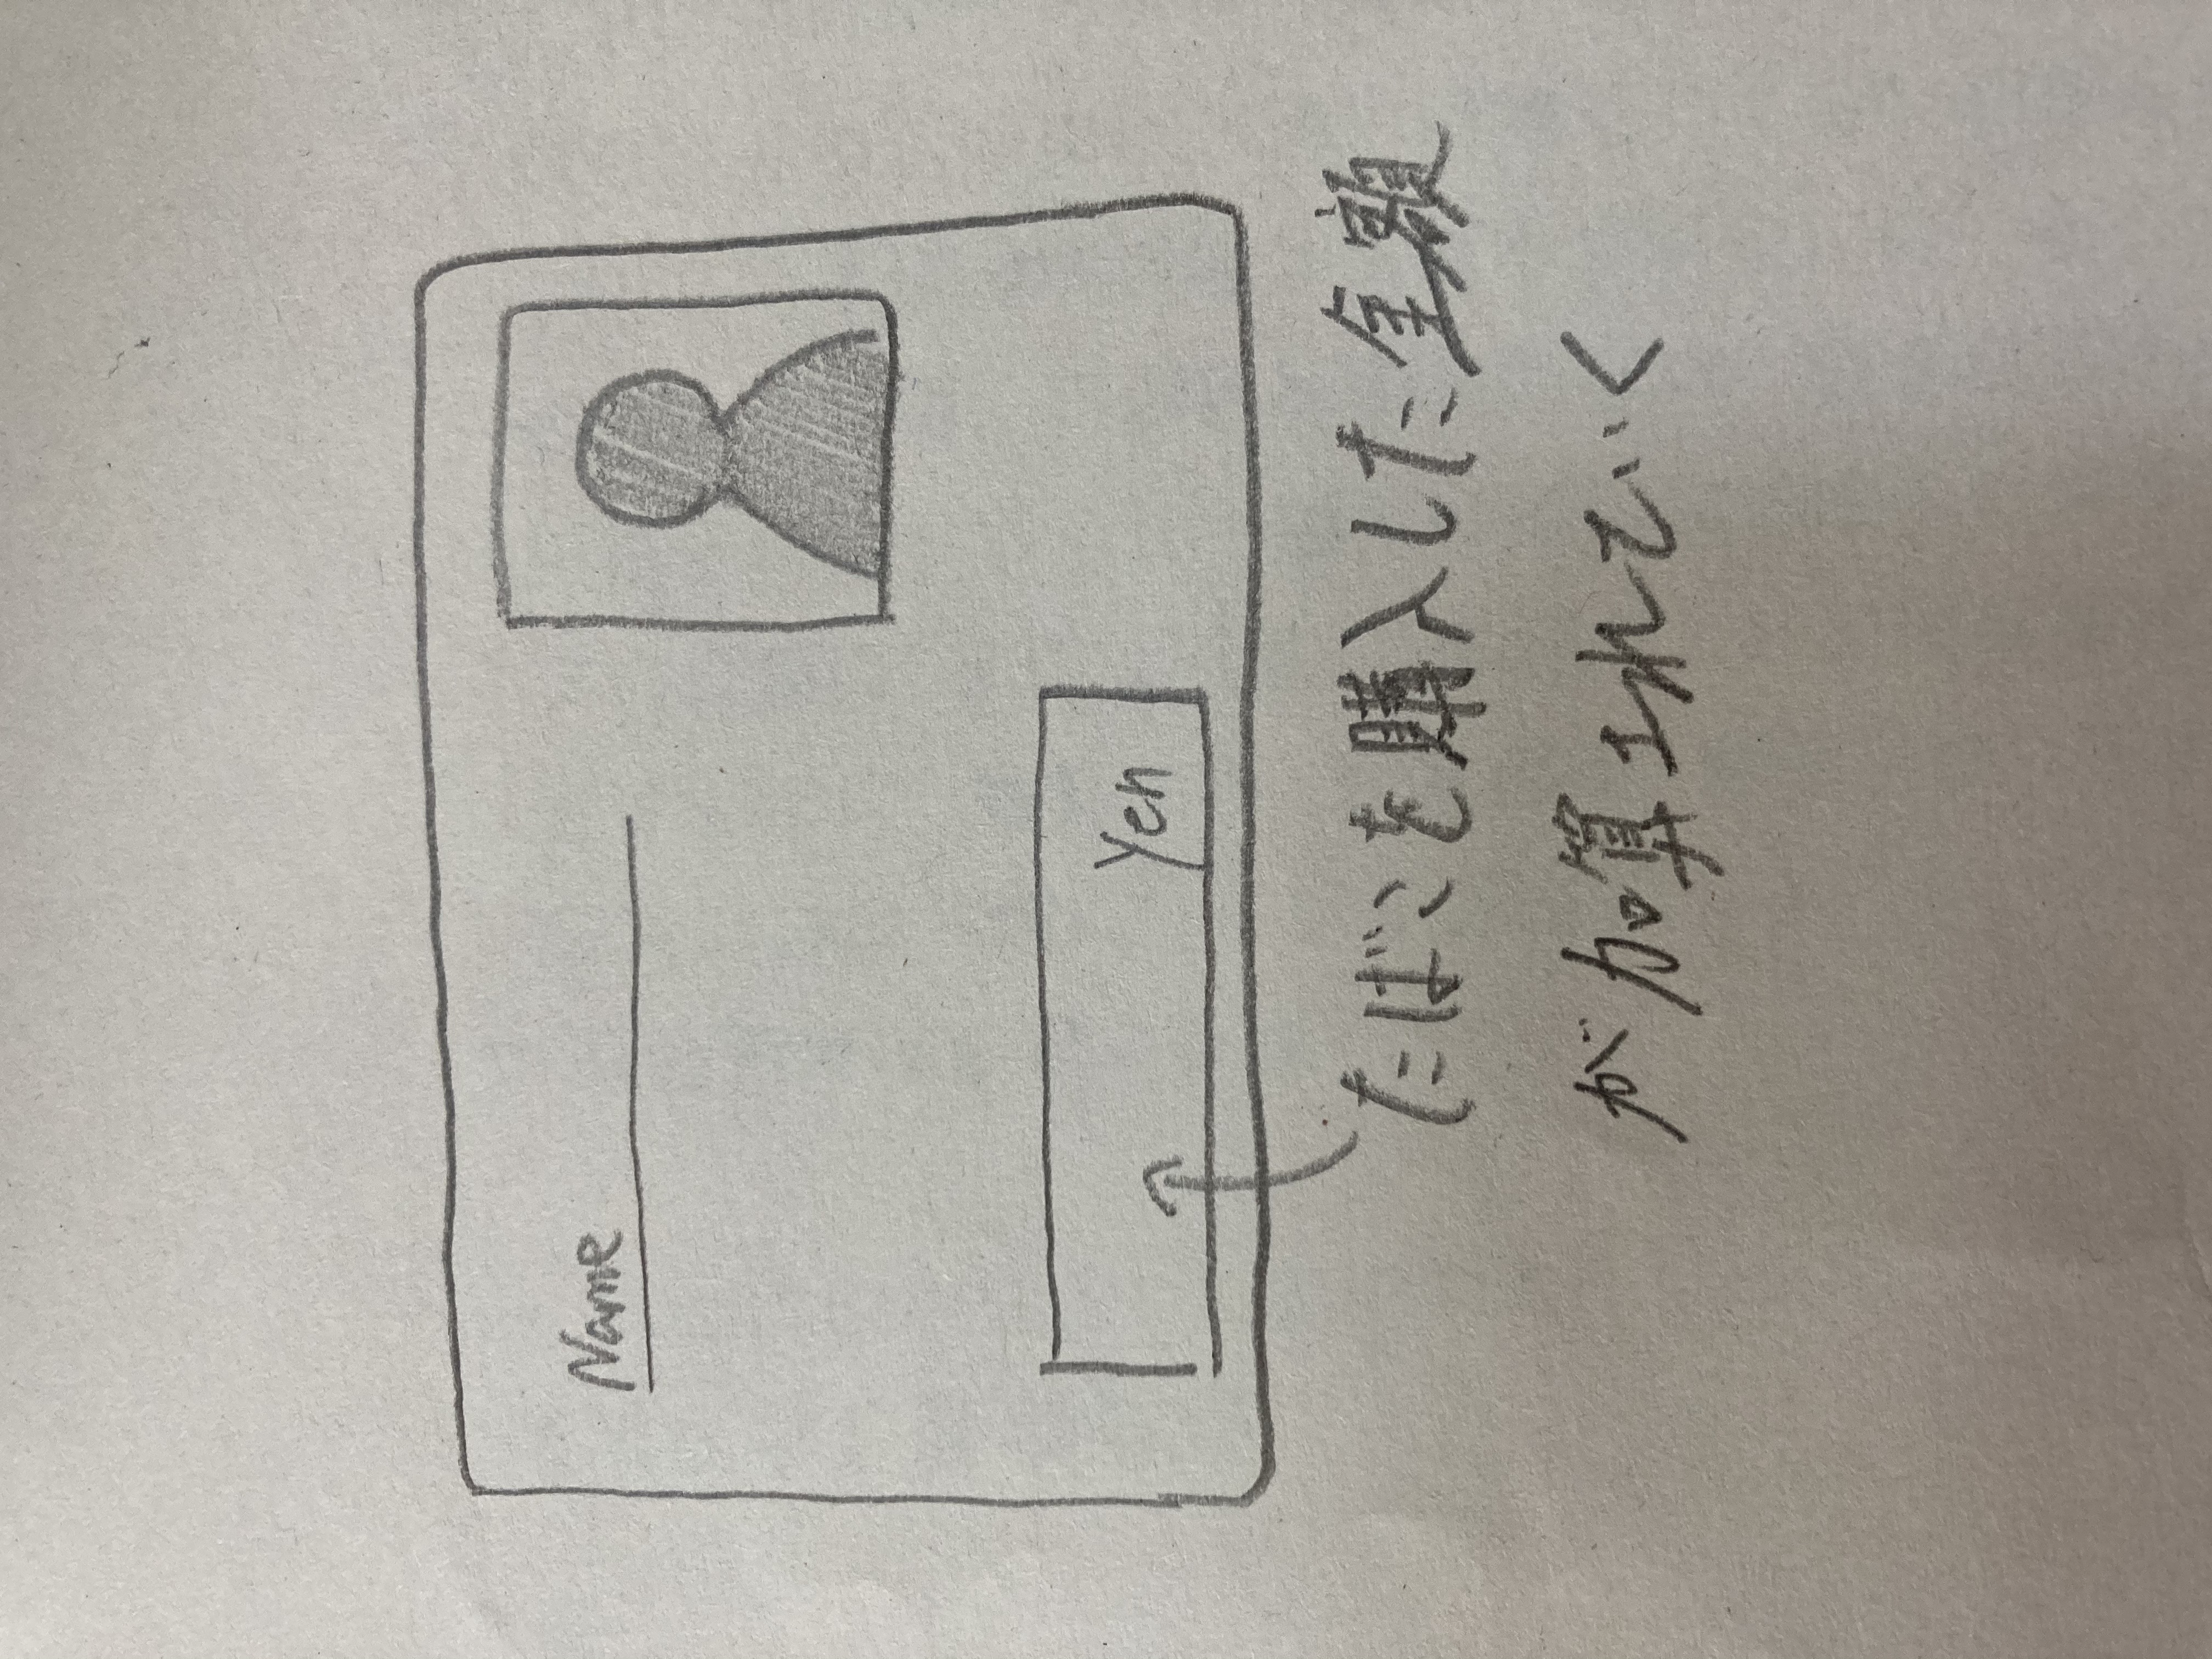 Name
Yen
たばこを購入した金額
が加算されていく